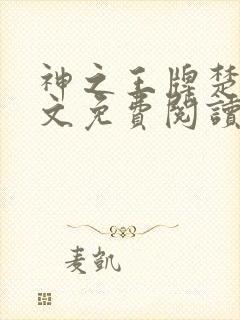 神之王牌楚
文免費閱讀
麦凯